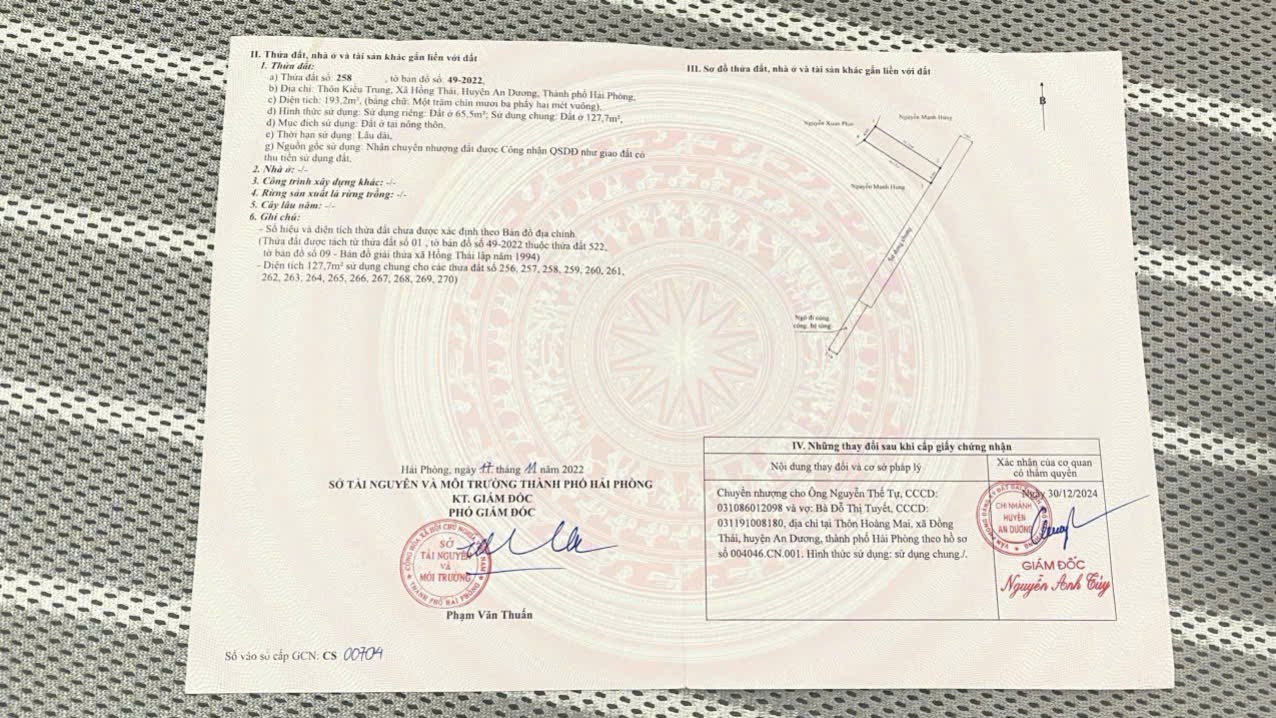 II. Thửa đất, nhà ở và tài sản khác gắn liền với đất
1. Thửa đất:
a) Thửa đất số: 258 , tờ bản đồ số: 49-2022,
b) Địa chỉ: Thôn Kiều Trung, Xã Hồng Thái, Huyện An Dương, Thành phố Hải Phòng,
c) Diện tích: 193,2m², (bằng chữ: Một trăm chín mươi ba phẩy hai mét vuông),
d) Hình thức sử dụng: Sử dụng riêng: Đất ở 65,5m²; Sử dụng chung: Đất ở 127,7m²,
đ) Mục đích sử dụng: Đất ở tại nông thôn,
e) Thời hạn sử dụng: Lâu dài,
g) Nguồn gốc sử dụng: Nhận chuyển nhượng đất được Công nhận QSDĐ như giao đất có
thu tiền sử dụng đất.
2. Nhà ở: -/-
3. Công trình xây dựng khác: -/-
4. Rừng sản xuất là rừng trồng: -/-
5. Cây lâu năm: -/-
6. Ghi chú:
- Số hiệu và diện tích thửa đất chưa được xác định theo Bản đồ địa chính
(Thửa đất được tách từ thửa đất số 01 , tờ bản đồ số 49-2022 thuộc thửa đất 522,
tờ bản đồ số 09 - Bản đồ giải thửa xã Hồng Thái lập năm 1994)
- Diện tích 127,7m² sử dụng chung cho các thửa đất số 256, 257, 258, 259, 260, 261,
262, 263, 264, 265, 266, 267, 268, 269, 270)
Hải Phòng, ngày 17 tháng 11 năm 2022
SỞ TÀI NGUYÊN VÀ MÔI TRƯỜNG THÀNH PHỐ HẢI PHÒNG
KT. GIÁM ĐỐC
PHÓ GIÁM ĐỐC
CỘNG HÒA XÃ HỘI CHỦ NGHĨA VIỆT NAM
SỞ
TÀI NGUYÊN
VÀ
MÔI TRƯỜNG
THÀNH PHỐ HẢI PHÒNG
Phạm Văn Thuấn
Số vào sổ cấp GCN: CS 00704
III. Sơ đồ thửa đất, nhà ở và tài sản khác gắn liền với đất
B
Nguyễn Mạnh Hùng
Nguyễn Xuân Phú
Nguyễn Mạnh Hùng
Sử dụng chung
Ngõ đi công
cộng, bê tông
IV. Những thay đổi sau khi cấp giấy chứng nhận
Nội dung thay đổi và cơ sở pháp lý
Xác nhận của cơ quan
có thẩm quyền
Chuyển nhượng cho Ông Nguyễn Thế Tự, CCCD:
031086012098 và vợ: Bà Đỗ Thị Tuyết, CCCD:
031191008180, địa chỉ tại Thôn Hoàng Mai, xã Đồng
Thái, huyện An Dương, thành phố Hải Phòng theo hồ sơ
số 004046.CN.001. Hình thức sử dụng: sử dụng chung./.
Ngày 30/12/2024
CHI NHÁNH
HUYỆN
AN DƯƠNG
GIÁM ĐỐC
Nguyễn Anh Túy